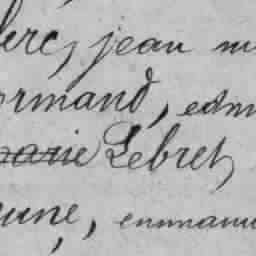 lerc, jean m
ormand, edm
marie Lebret,
eune, emmanu